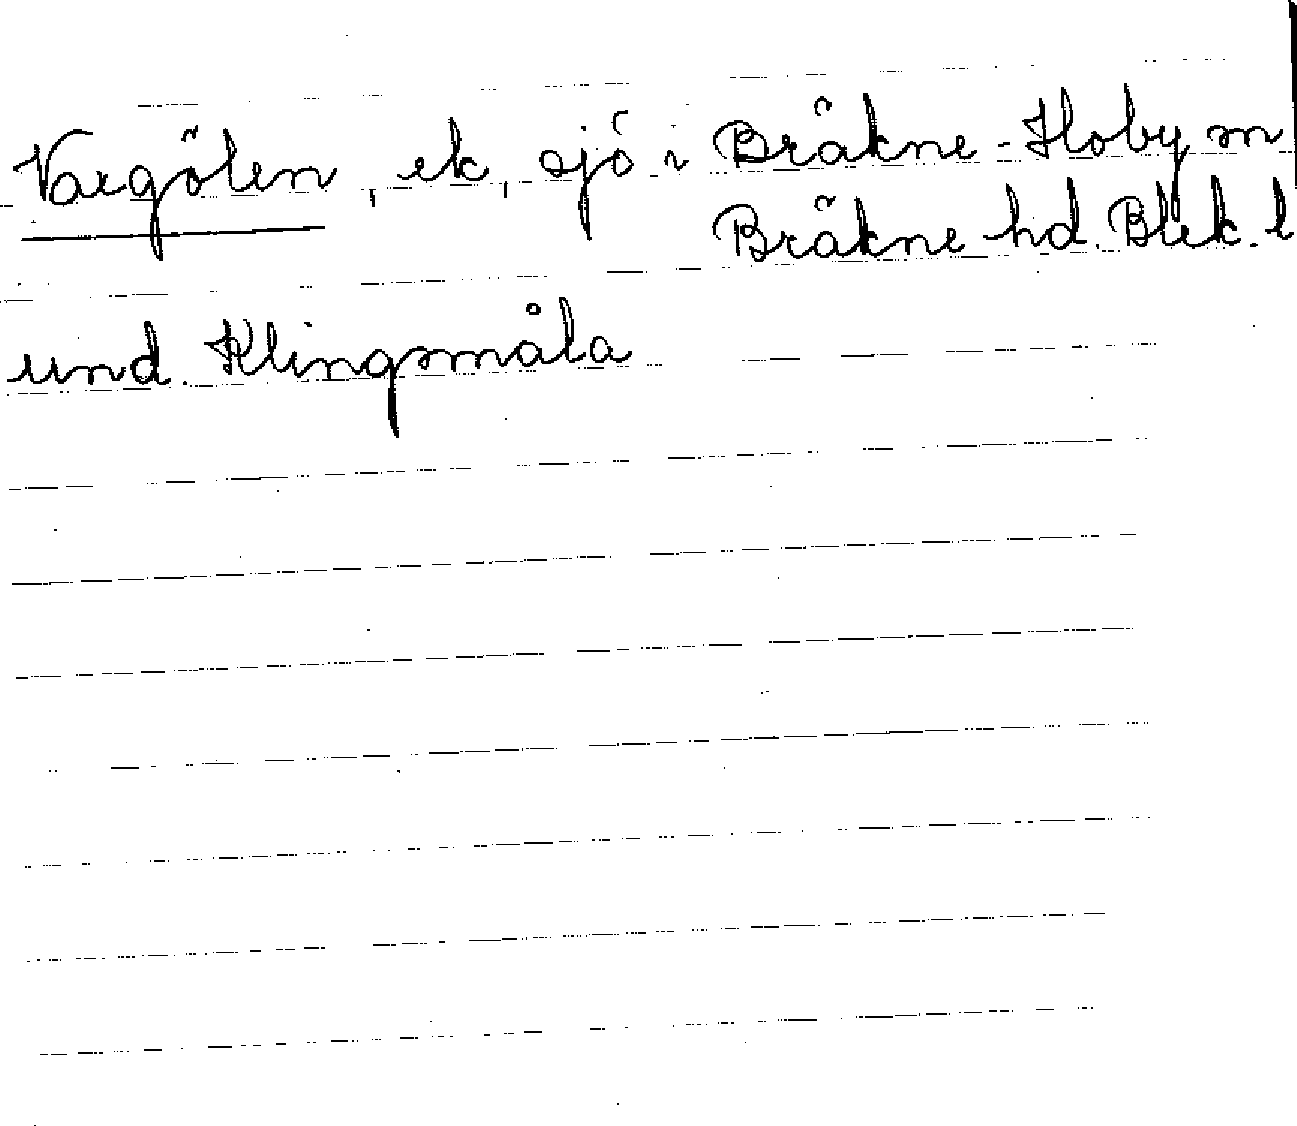 Vargölen, ek, sjö i Bräkne-Hoby sn
Bräkne hd. Blek. l
und. Klingsmåla